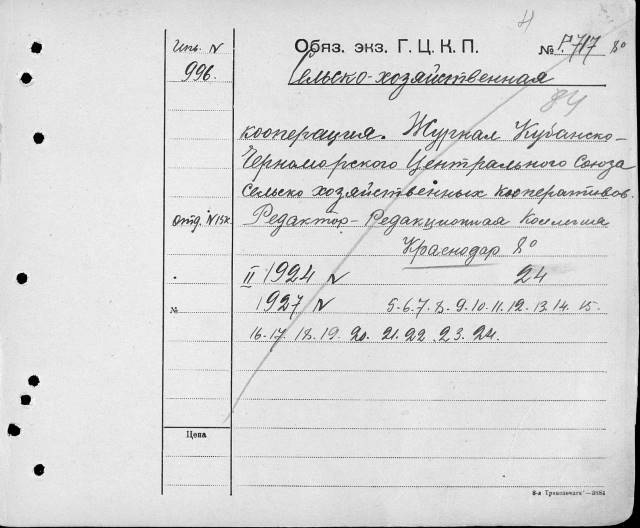 Инв. N
996.
Обяз. экз. Г. Ц. К. П.
№ Р.717 8º
Сельско-хозяйственная
84
кооперация. Журнал Кубанско-
Черноморского Центрального Союза
сельско хозяйственных кооперативов.
Отд. N
Редактор-Редакционная Коллегия
Краснодар 8º
II 1924 N 24
№ 1927 N 5.6.7.8.9.10.11.12.13.14.15.
16.17.18.19.20.21.22.23.24.
Цена